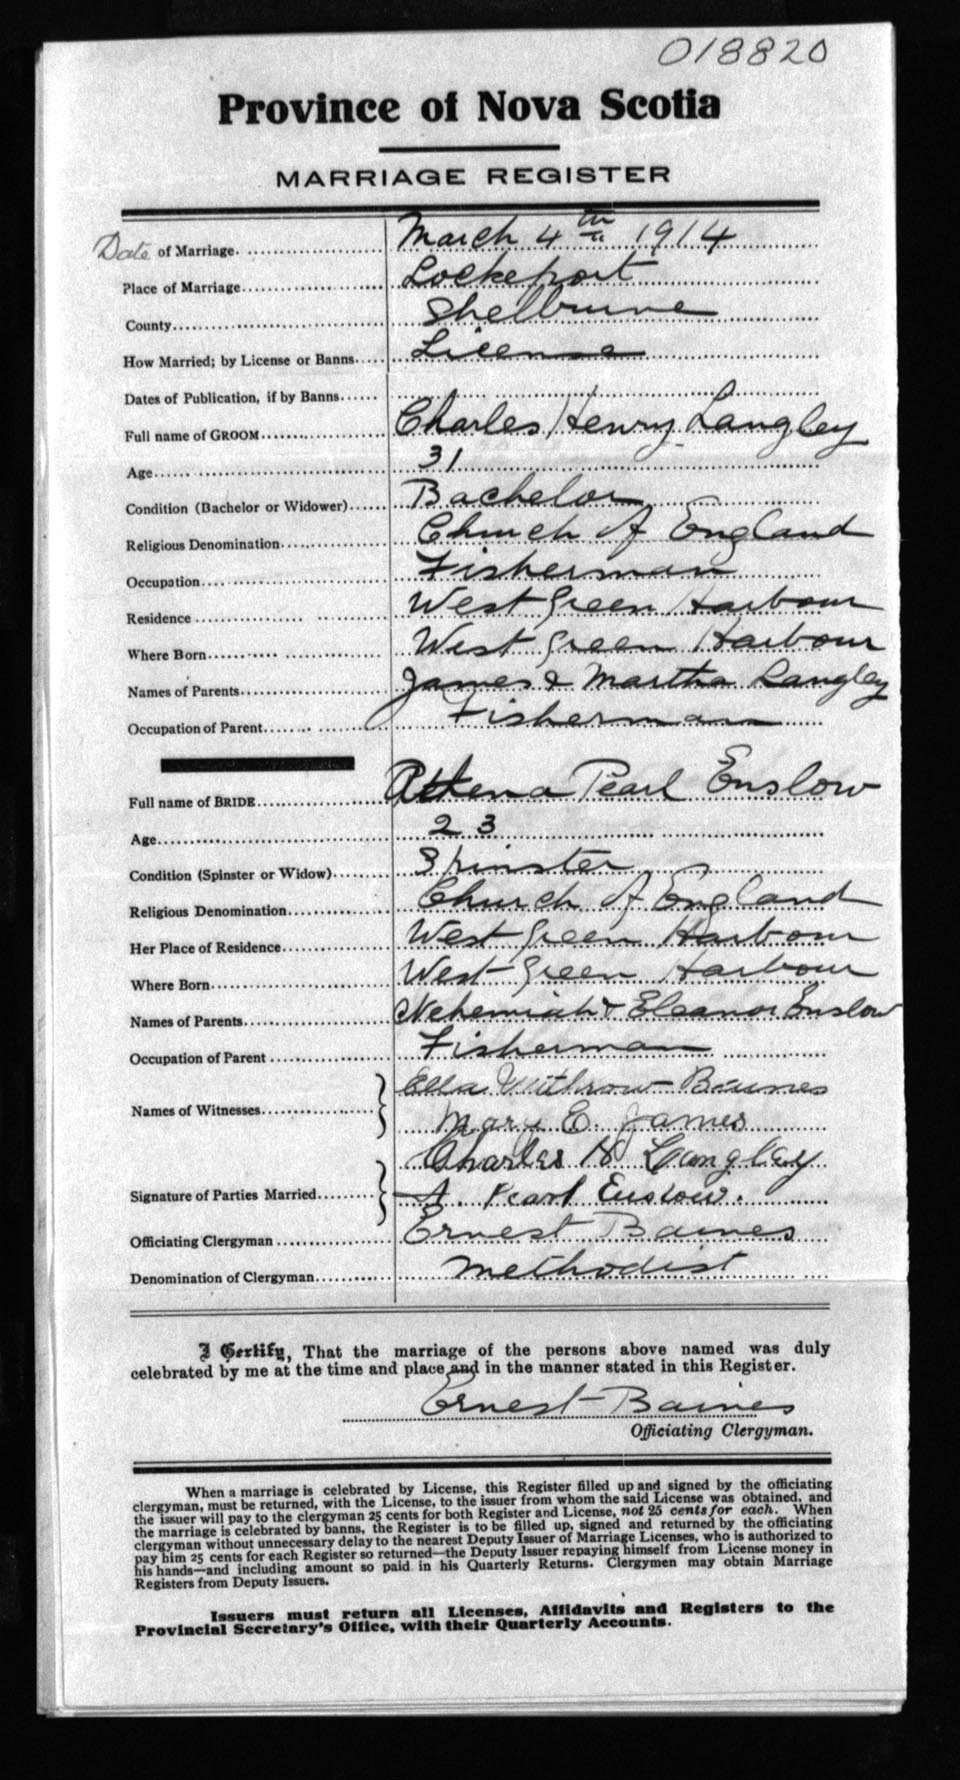 018820
Province of Nova Scotia
MARRIAGE REGISTER
Date of Marriage. March 4th 1914
Place of Marriage Lockeport
County Shelburne
How Married; by License or Banns License
Dates of Publication, if by Banns
Full name of GROOM Charles Henry Langley
Age 31
Condition (Bachelor or Widower) Bachelor
Religious Denomination Church of England
Occupation Fisherman
Residence West Green Harbour
Where Born West Green Harbour
Names of Parents James & Martha Langley
Occupation of Parent Fisherman
Full name of BRIDE Attena Pearl Enslow
Age 23
Condition (Spinster or Widow) Spinster
Religious Denomination Church of England
Her Place of Residence West Green Harbour
Where Born West Green Harbour
Names of Parents Nehemiah & Eleanor Enslow
Occupation of Parent Fisherman
Names of Witnesses Ella Withrow Baines
Mary E. James
Signature of Parties Married Charles H Langley
A. Pearl Enslow.
Officiating Clergyman Ernest Baines
Denomination of Clergyman Methodist
I Certify, That the marriage of the persons above named was duly
celebrated by me at the time and place and in the manner stated in this Register.
Ernest Baines
Officiating Clergyman.
When a marriage is celebrated by License, this Register filled up and signed by the officiating
clergyman, must be returned, with the License, to the issuer from whom the said License was obtained, and
the issuer will pay to the clergyman 25 cents for both Register and License, not 25 cents for each. When
the marriage is celebrated by banns, the Register is to be filled up, signed and returned by the officiating
clergyman without unnecessary delay to the nearest Deputy Issuer of Marriage Licenses, who is authorized to
pay him 25 cents for each Register so returned—the Deputy Issuer repaying himself from License money in
his hands—and including amount so paid in his Quarterly Returns. Clergymen may obtain Marriage
Registers from Deputy Issuers.
Issuers must return all Licenses, Affidavits and Registers to the
Provincial Secretary's Office, with their Quarterly Accounts.